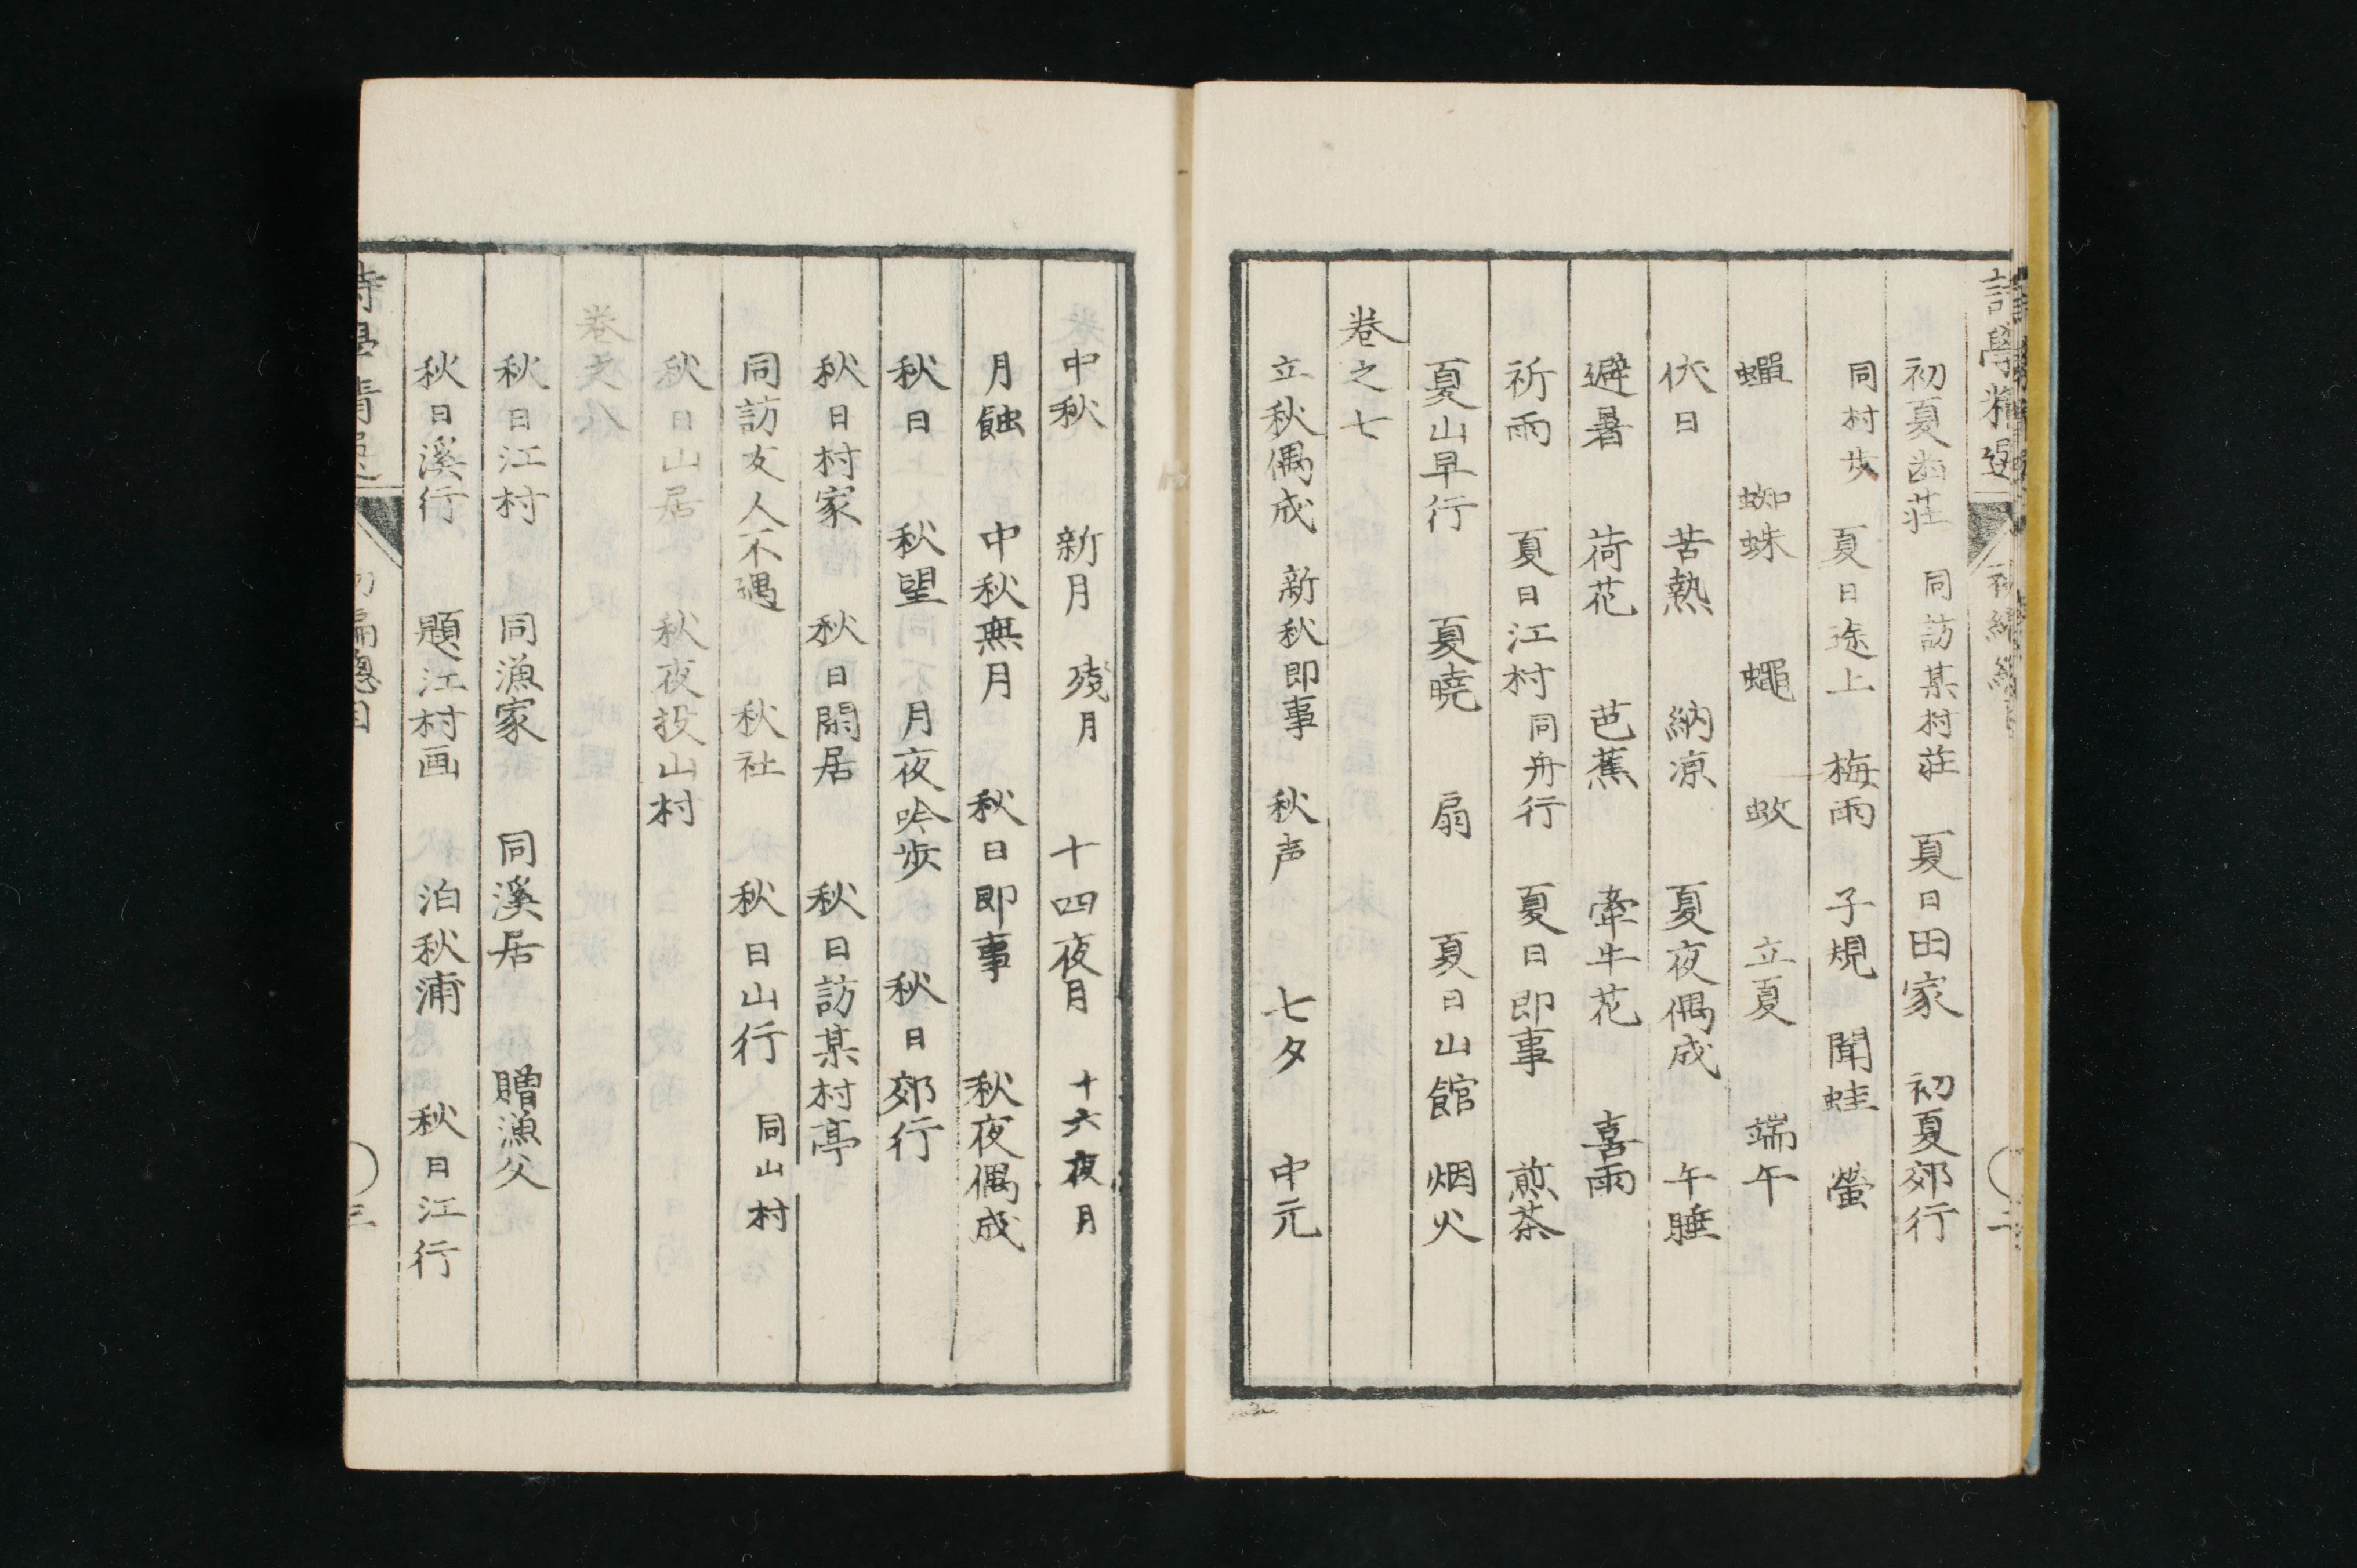 初夏幽荘　同訪某村荘　夏日田家　初夏郊行
同村歩　夏日途上　梅雨　子規　聞蛙　螢
蟬　蜘蛛　蠅　蚊　立夏　端午
伏日　苦熱　納凉　夏夜偶成　午睡
避暑　荷花　芭蕉　牽牛花　喜雨
祈雨　夏日江村　同舟行　夏日即事　煎茶
夏山早行　夏曉　扇　夏日山館　烟火
卷之七
立秋偶成　新秋即事　秋声　七夕　中元
中秋　新月　殘月　十四夜月　十六夜月
月蝕　中秋無月　秋日即事　秋夜偶成
秋日　秋望　月夜吟歩　秋日郊行
秋日村家　秋日閑居　秋日訪某村亭
同訪友人不遇　秋社　秋日山行　同山村
秋日山居　秋夜投山村
卷之八
秋日江村　同漁家　同溪居　贈漁父
秋日溪行　題江村画　泊秋浦　秋日江行
三